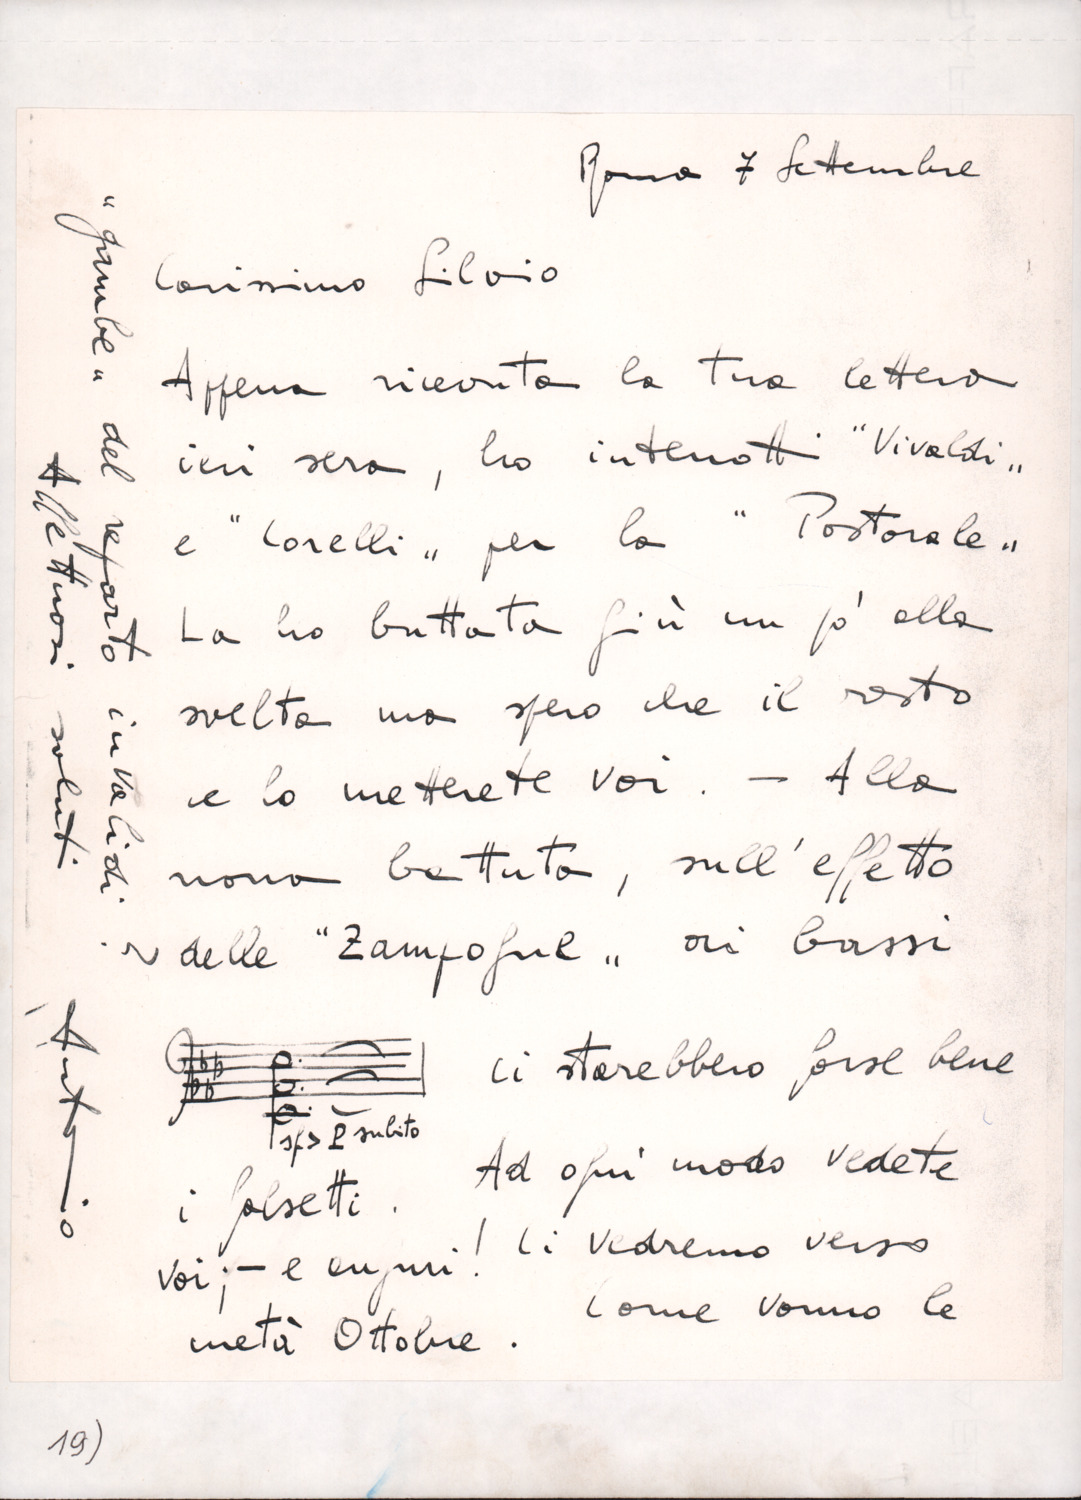 Roma 7 Settembre
Carissimo Silvio
Appena ricevuta la tua lettera
ieri sera, ho interrotti "Vivaldi„
e "Corelli„ per la "Pastorale„
La ho buttata giù un pò alla
svelta ma spero che il resto
ce lo metterete voi. — Alla
nona battuta, sull'effetto
delle "Zampogne„ ai bassi
sf> P subito
ci starebbero forse bene
i falsetti. Ad ogni modo vedete
voi; — e auguri! Ci vedremo verso
metà Ottobre. Come vanno le
"gambe„ del reparto invalidi. ~
Affettuosi saluti
Antonio
19)